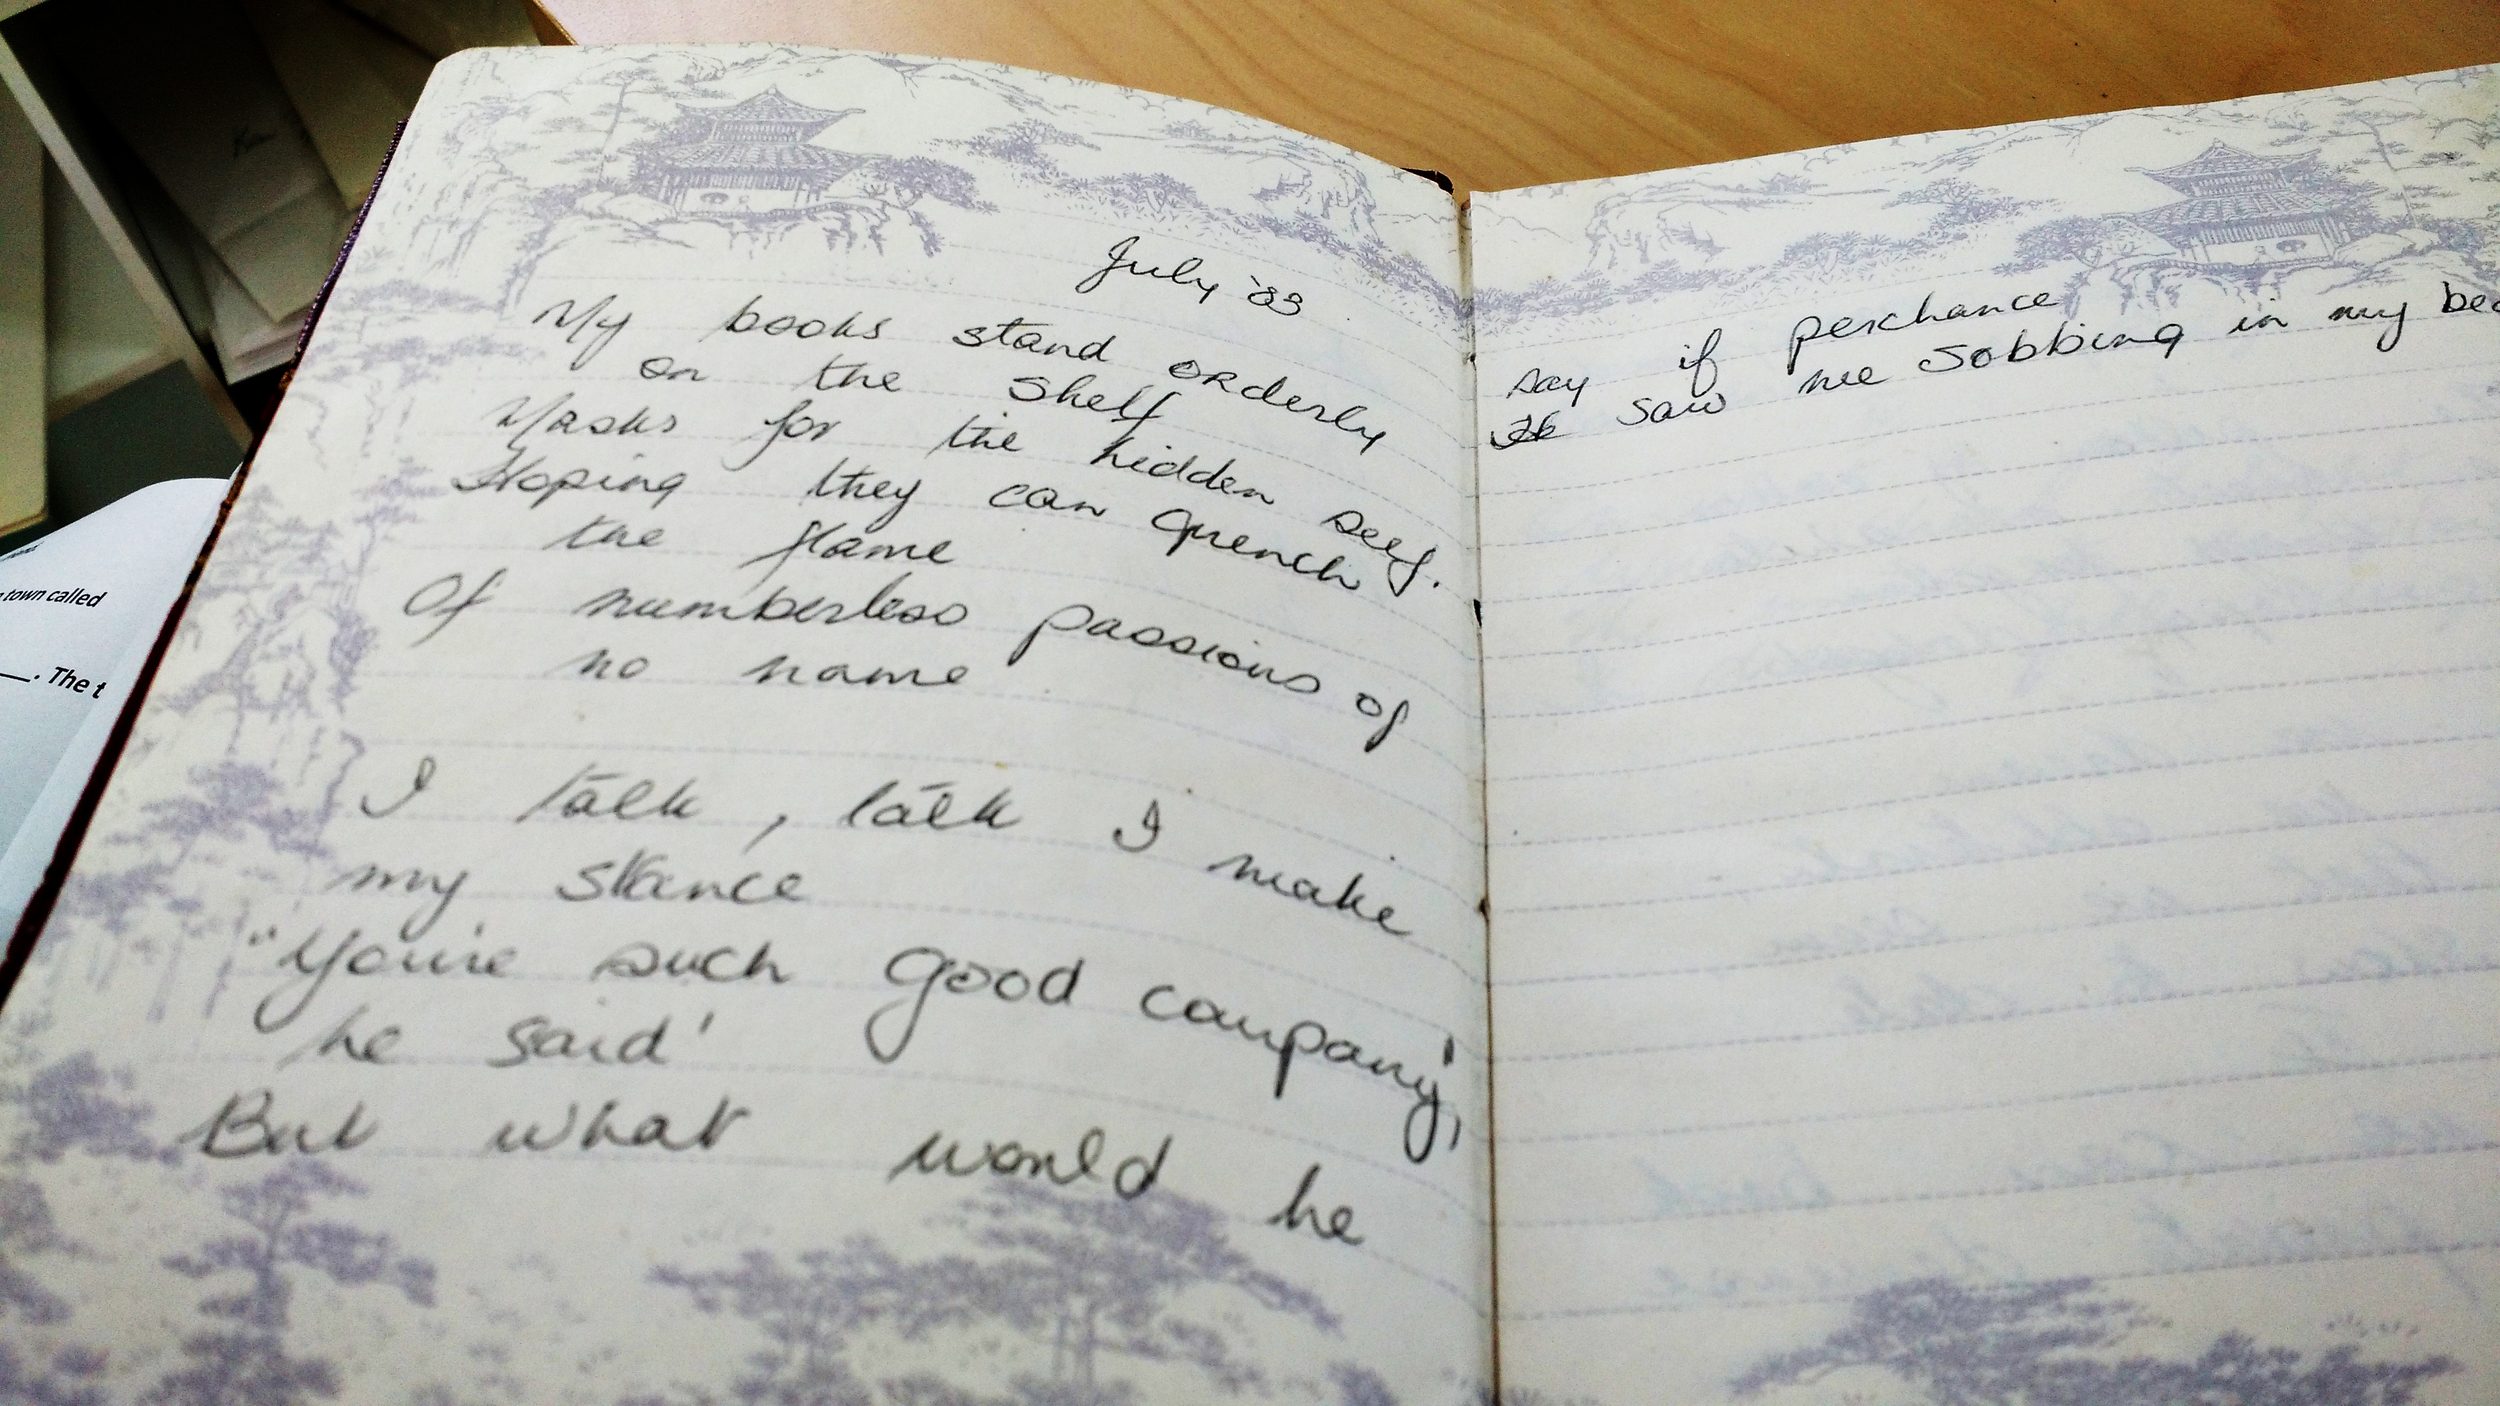 July '83
My books stand orderly
on the shelf
Masks for the hidden self.
Hoping they can quench
the flame
Of numberless passions of
no name
I talk, talk I make
my stance
"You're such good company,'
he said'
But what would he
say if perchance
He saw me sobbing in my
town called
. The t